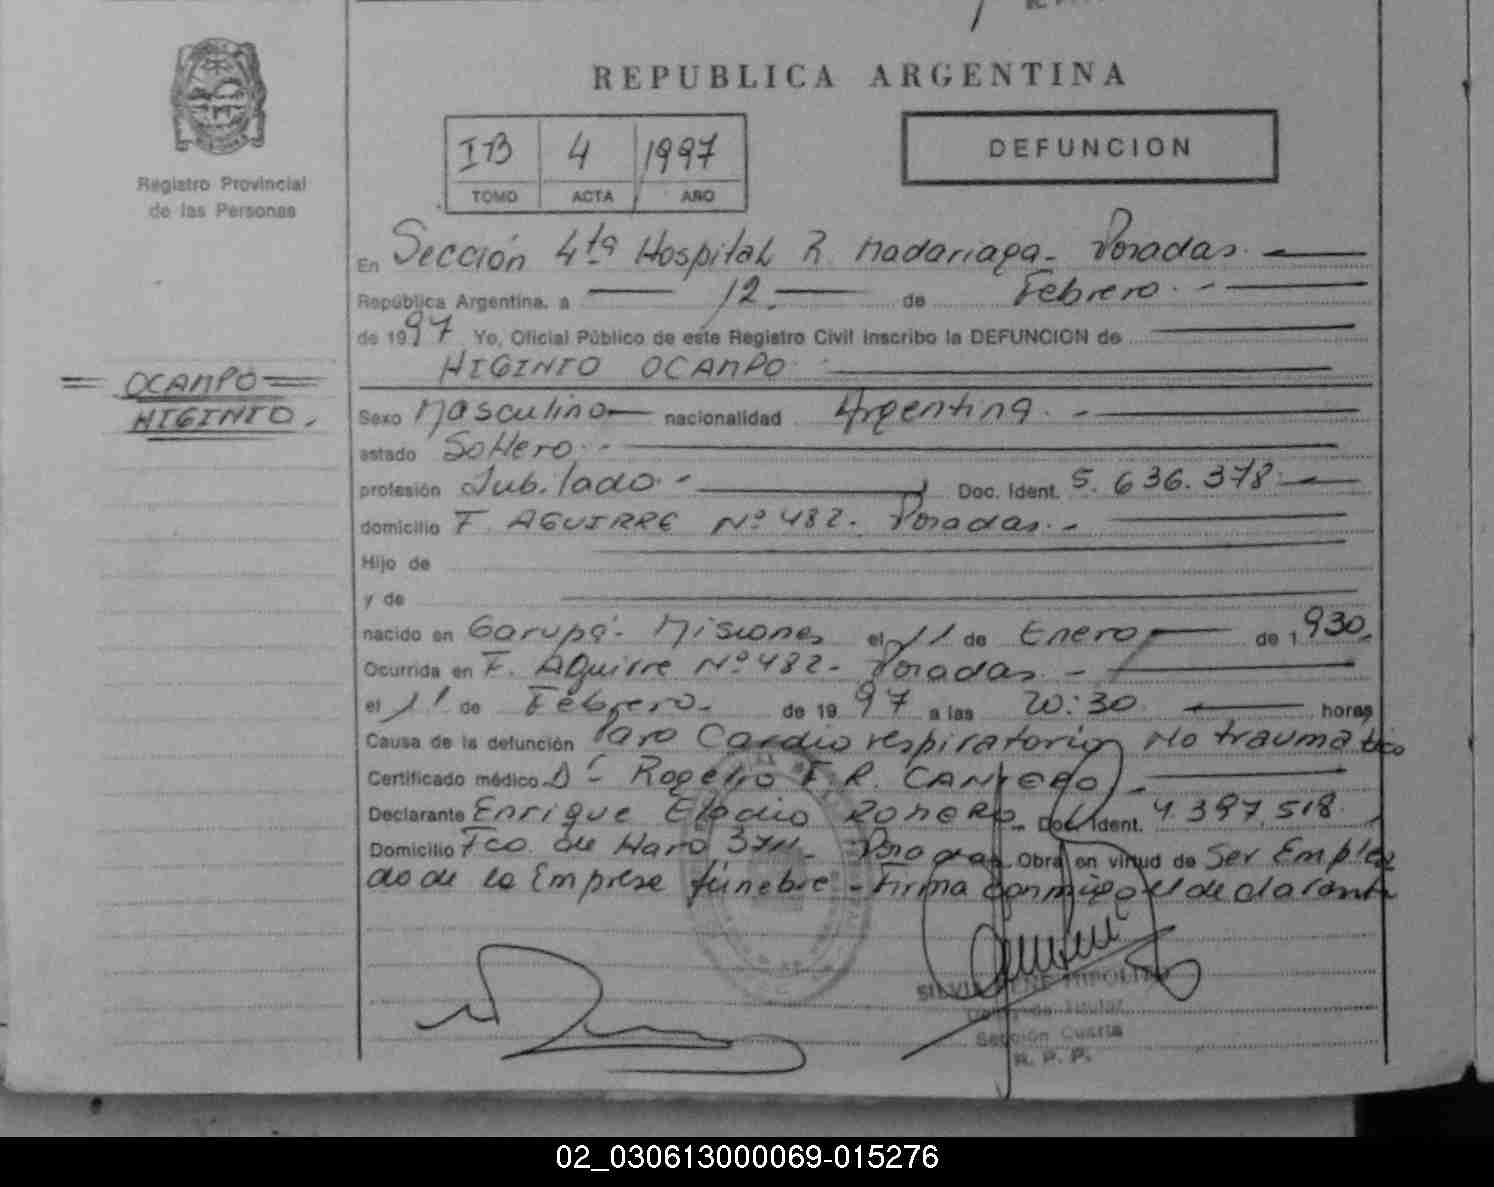 REPUBLICA ARGENTINA
IB 4 1997
TOMO ACTA AÑO
DEFUNCION
Registro Provincial
de las Personas
En Sección 4ta Hospital R. Madariaga - Posadas.
República Argentina, a 12 de Febrero
de 1997 Yo, Oficial Público de este Registro Civil inscribo la DEFUNCION de
HIGINIO OCAMPO
OCAMPO
HIGINIO.
Sexo Masculino nacionalidad Argentina. -
estado Soltero. -
profesión Jubilado. - Doc. Ident. 5.636.378
domicilio F. AGUIRRE Nº 482. Posadas. -
Hijo de
y de
nacido en Garupá - Misiones el 11 de Enero de 1930
Ocurrida en F. Aguirre Nº 482 - Posadas. -
el 11 de Febrero. de 1997 a las 20:30 horas
Causa de la defunción Paro Cardio respiratorio No traumatico
Certificado médico Dr. Rogelio F. R. CANTERO -
Declarante Enrique Eladio ROMERO - Doc. Ident. 4.397.518
Domicilio Fco. de Haro Posadas Obra en virtud de Ser Emplea
do de la Empresa fúnebre - Firma conmigo el declarante
SILVIA IRENE HIPOLITO
Titular
Sección Cuarta
R. P. P.
02_030613000069-015276